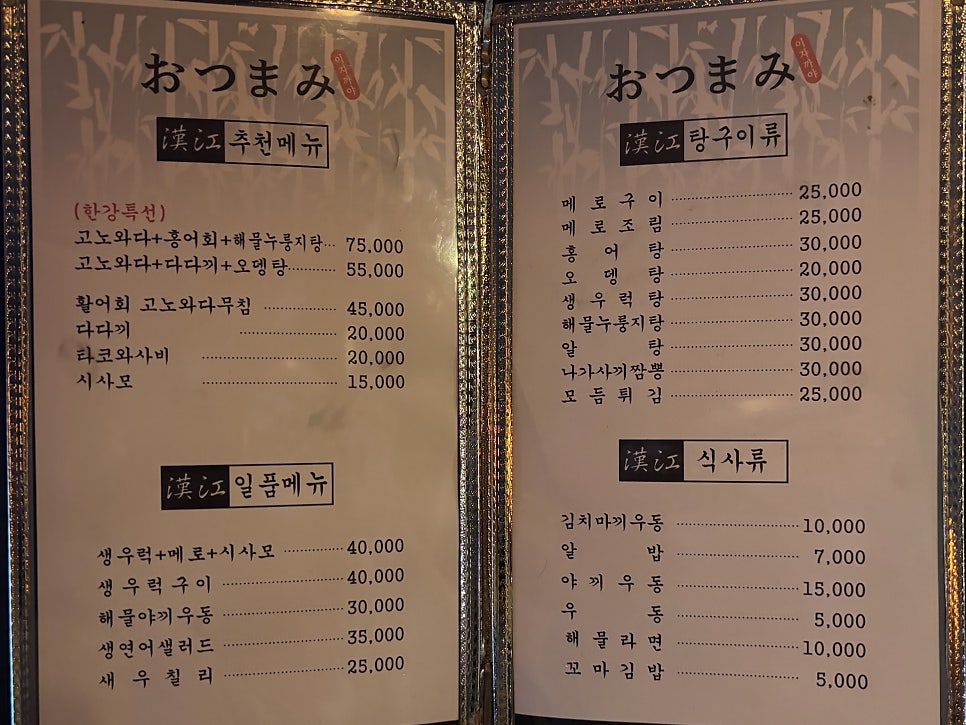 おつまみ 이자까야
漢江 추천메뉴
(한강특선)
고노와다+홍어회+해물누룽지탕 75,000
고노와다+다다끼+오뎅탕 55,000
활어회 고노와다무침 45,000
다다끼 20,000
타코와사비 20,000
시사모 15,000
漢江 일품메뉴
생우럭+메로+시사모 40,000
생우럭구이 40,000
해물야끼우동 30,000
생연어샐러드 35,000
새우칠리 25,000
おつまみ 이자까야
漢江 탕구이류
메로구이 25,000
메로조림 25,000
홍어탕 30,000
오뎅탕 20,000
생우럭탕 30,000
해물누룽지탕 30,000
알탕 30,000
나가사끼짬뽕 30,000
모듬튀김 25,000
漢江 식사류
김치마끼우동 10,000
알밥 7,000
야끼우동 15,000
우동 5,000
해물라면 10,000
꼬마김밥 5,000